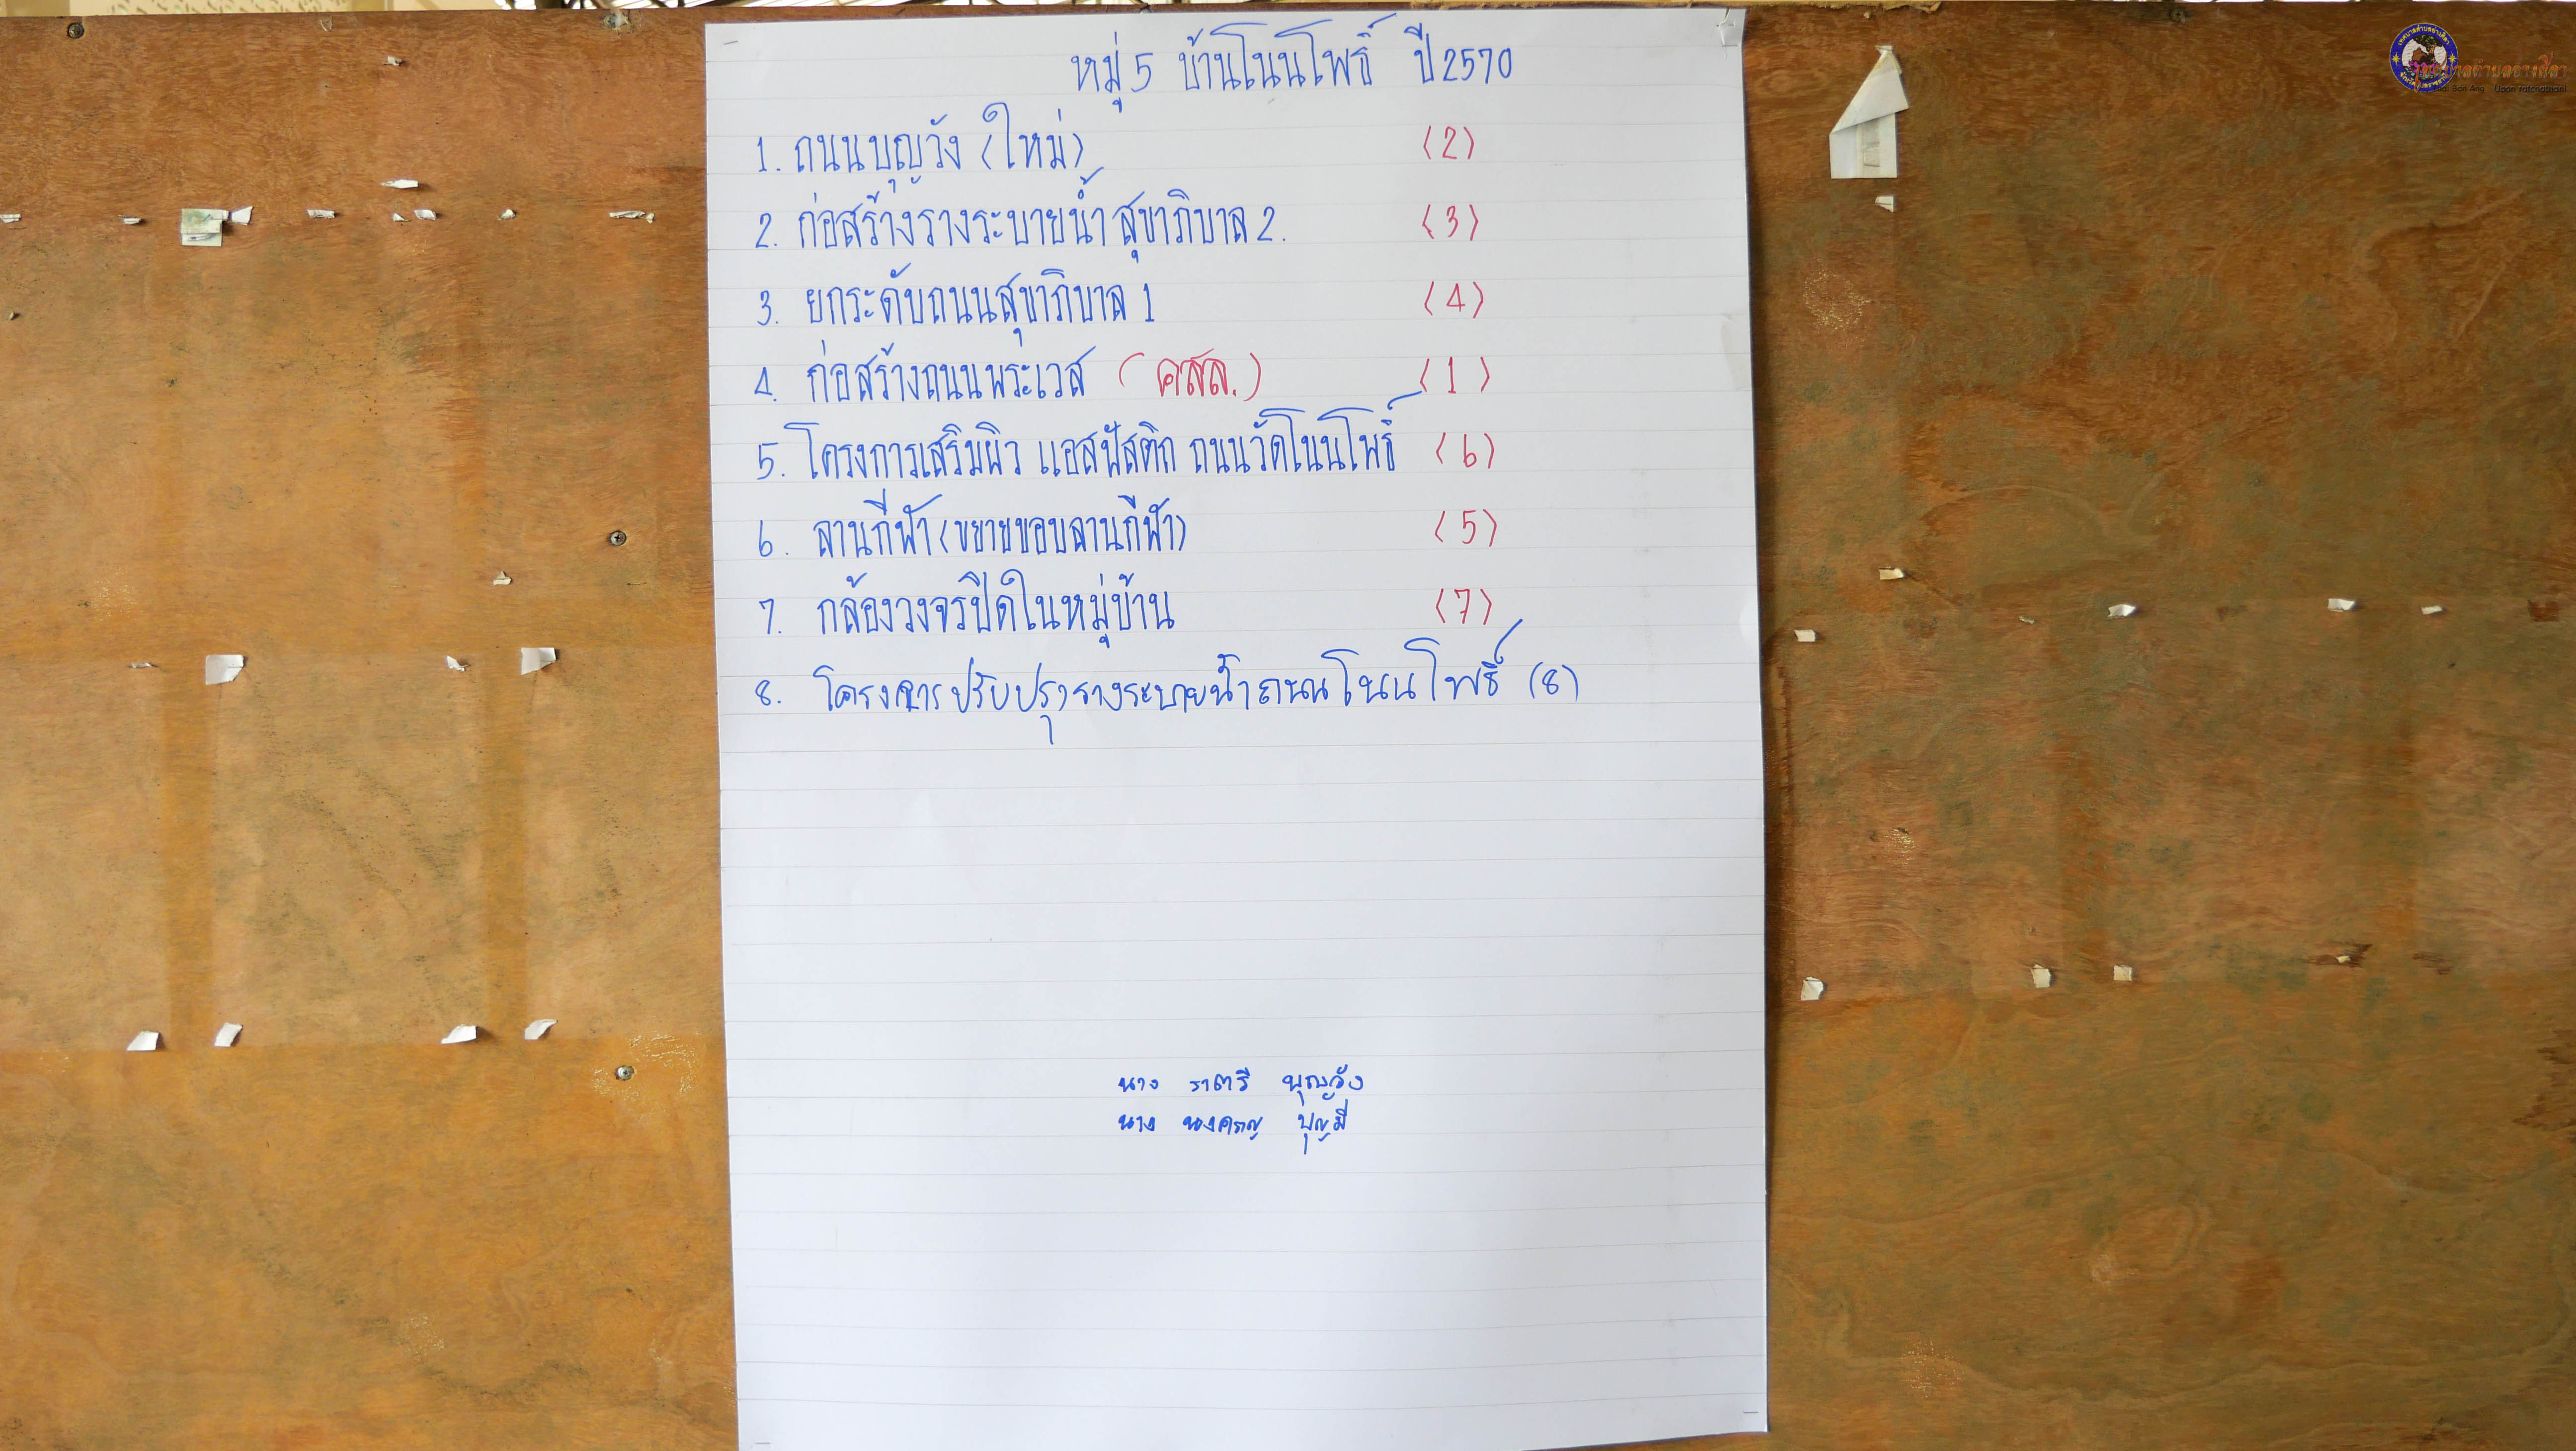 หมู่ 5 บ้านโนนโพธิ์ ปี 2570
1. ถนนบุญวัง (ใหม่) (2)
2. ก่อสร้างรางระบายน้ำ สุขาภิบาล 2. (3)
3. ยกระดับถนนสุขาภิบาล 1 (4)
4. ก่อสร้างถนนพระเวส (คสล.) (1)
5. โครงการเสริมผิว แอสฟัสติก ถนนวัดโนนโพธิ์ (6)
6. ลานกีฬา (ขยายขอบลานกีฬา) (5)
7. กล้องวงจรปิดในหมู่บ้าน (7)
8. โครงการปรับปรุงรางระบายน้ำถนนโนนโพธิ์ (8)
นาง ราตรี บุญวัง
นาง นงคราญ บุญมี